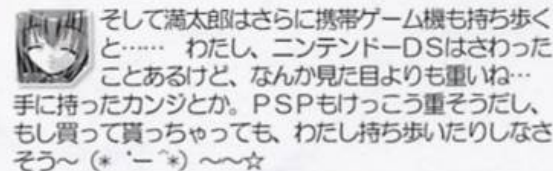 そして満太郎はさらに携帯ゲーム機も持ち歩く
と…… わたし、ニンテンドーDSはさわった
ことあるけど、なんか見た目よりも重いね…
手に持ったカンジとか。PSPもけっこう重そうだし、
もし買って貰っちゃっても、わたし持ち歩いたりしなさ
そう～（*゜ー^*）～～☆